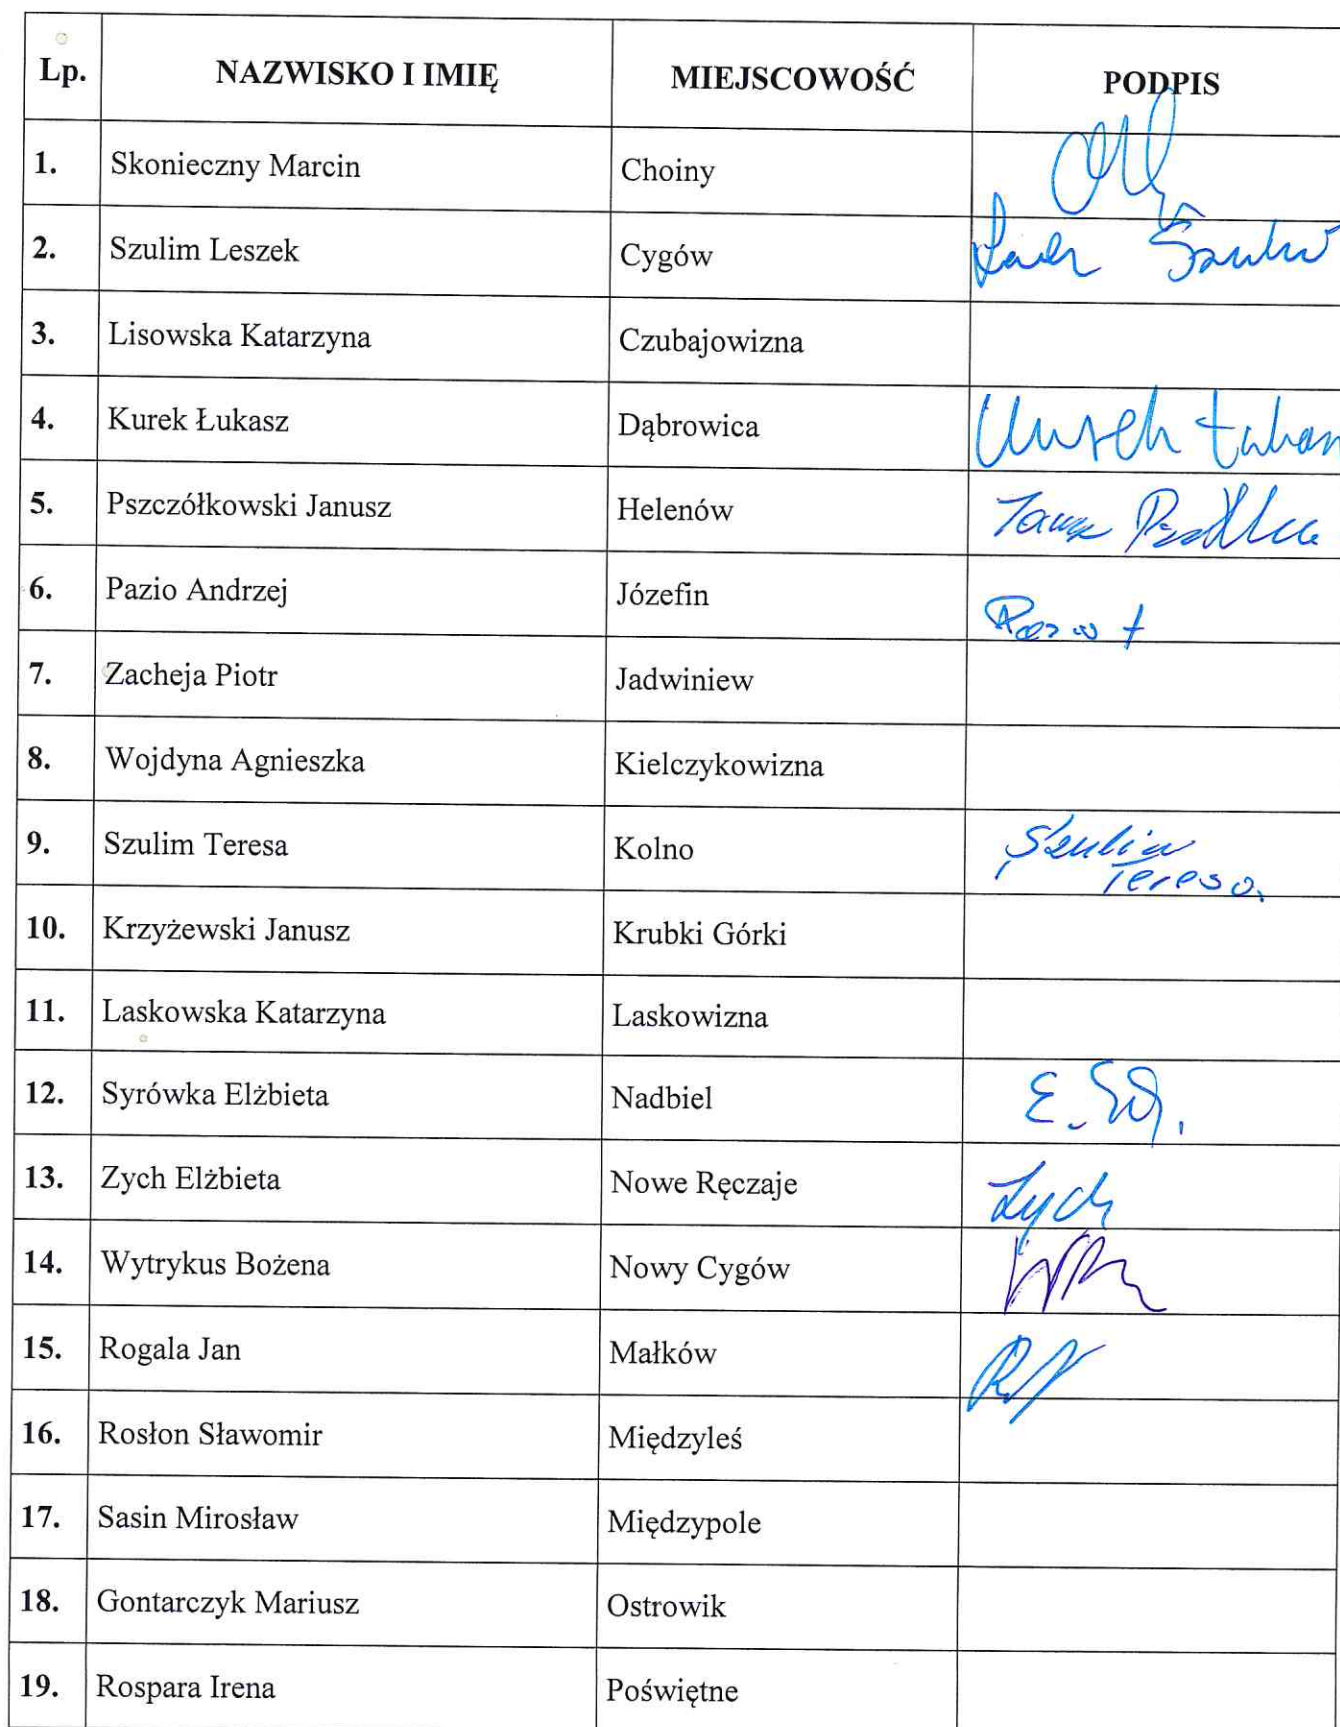 Lp. NAZWISKO I IMIĘ MIEJSCOWOŚĆ PODPIS
1. Skonieczny Marcin Choiny
2. Szulim Leszek Cygów
3. Lisowska Katarzyna Czubajowizna
4. Kurek Łukasz Dąbrowica
5. Pszczółkowski Janusz Helenów
6. Pazio Andrzej Józefin
7. Zacheja Piotr Jadwiniew
8. Wojdyna Agnieszka Kielczykowizna
9. Szulim Teresa Kolno Szulim
Teresa
10. Krzyżewski Janusz Krubki Górki
11. Laskowska Katarzyna Laskowizna
12. Syrówka Elżbieta Nadbiel
13. Zych Elżbieta Nowe Ręczaje Zych
14. Wytrykus Bożena Nowy Cygów
15. Rogala Jan Małków
16. Rosłon Sławomir Międzyleś
17. Sasin Mirosław Międzypole
18. Gontarczyk Mariusz Ostrowik
19. Rospara Irena Poświętne